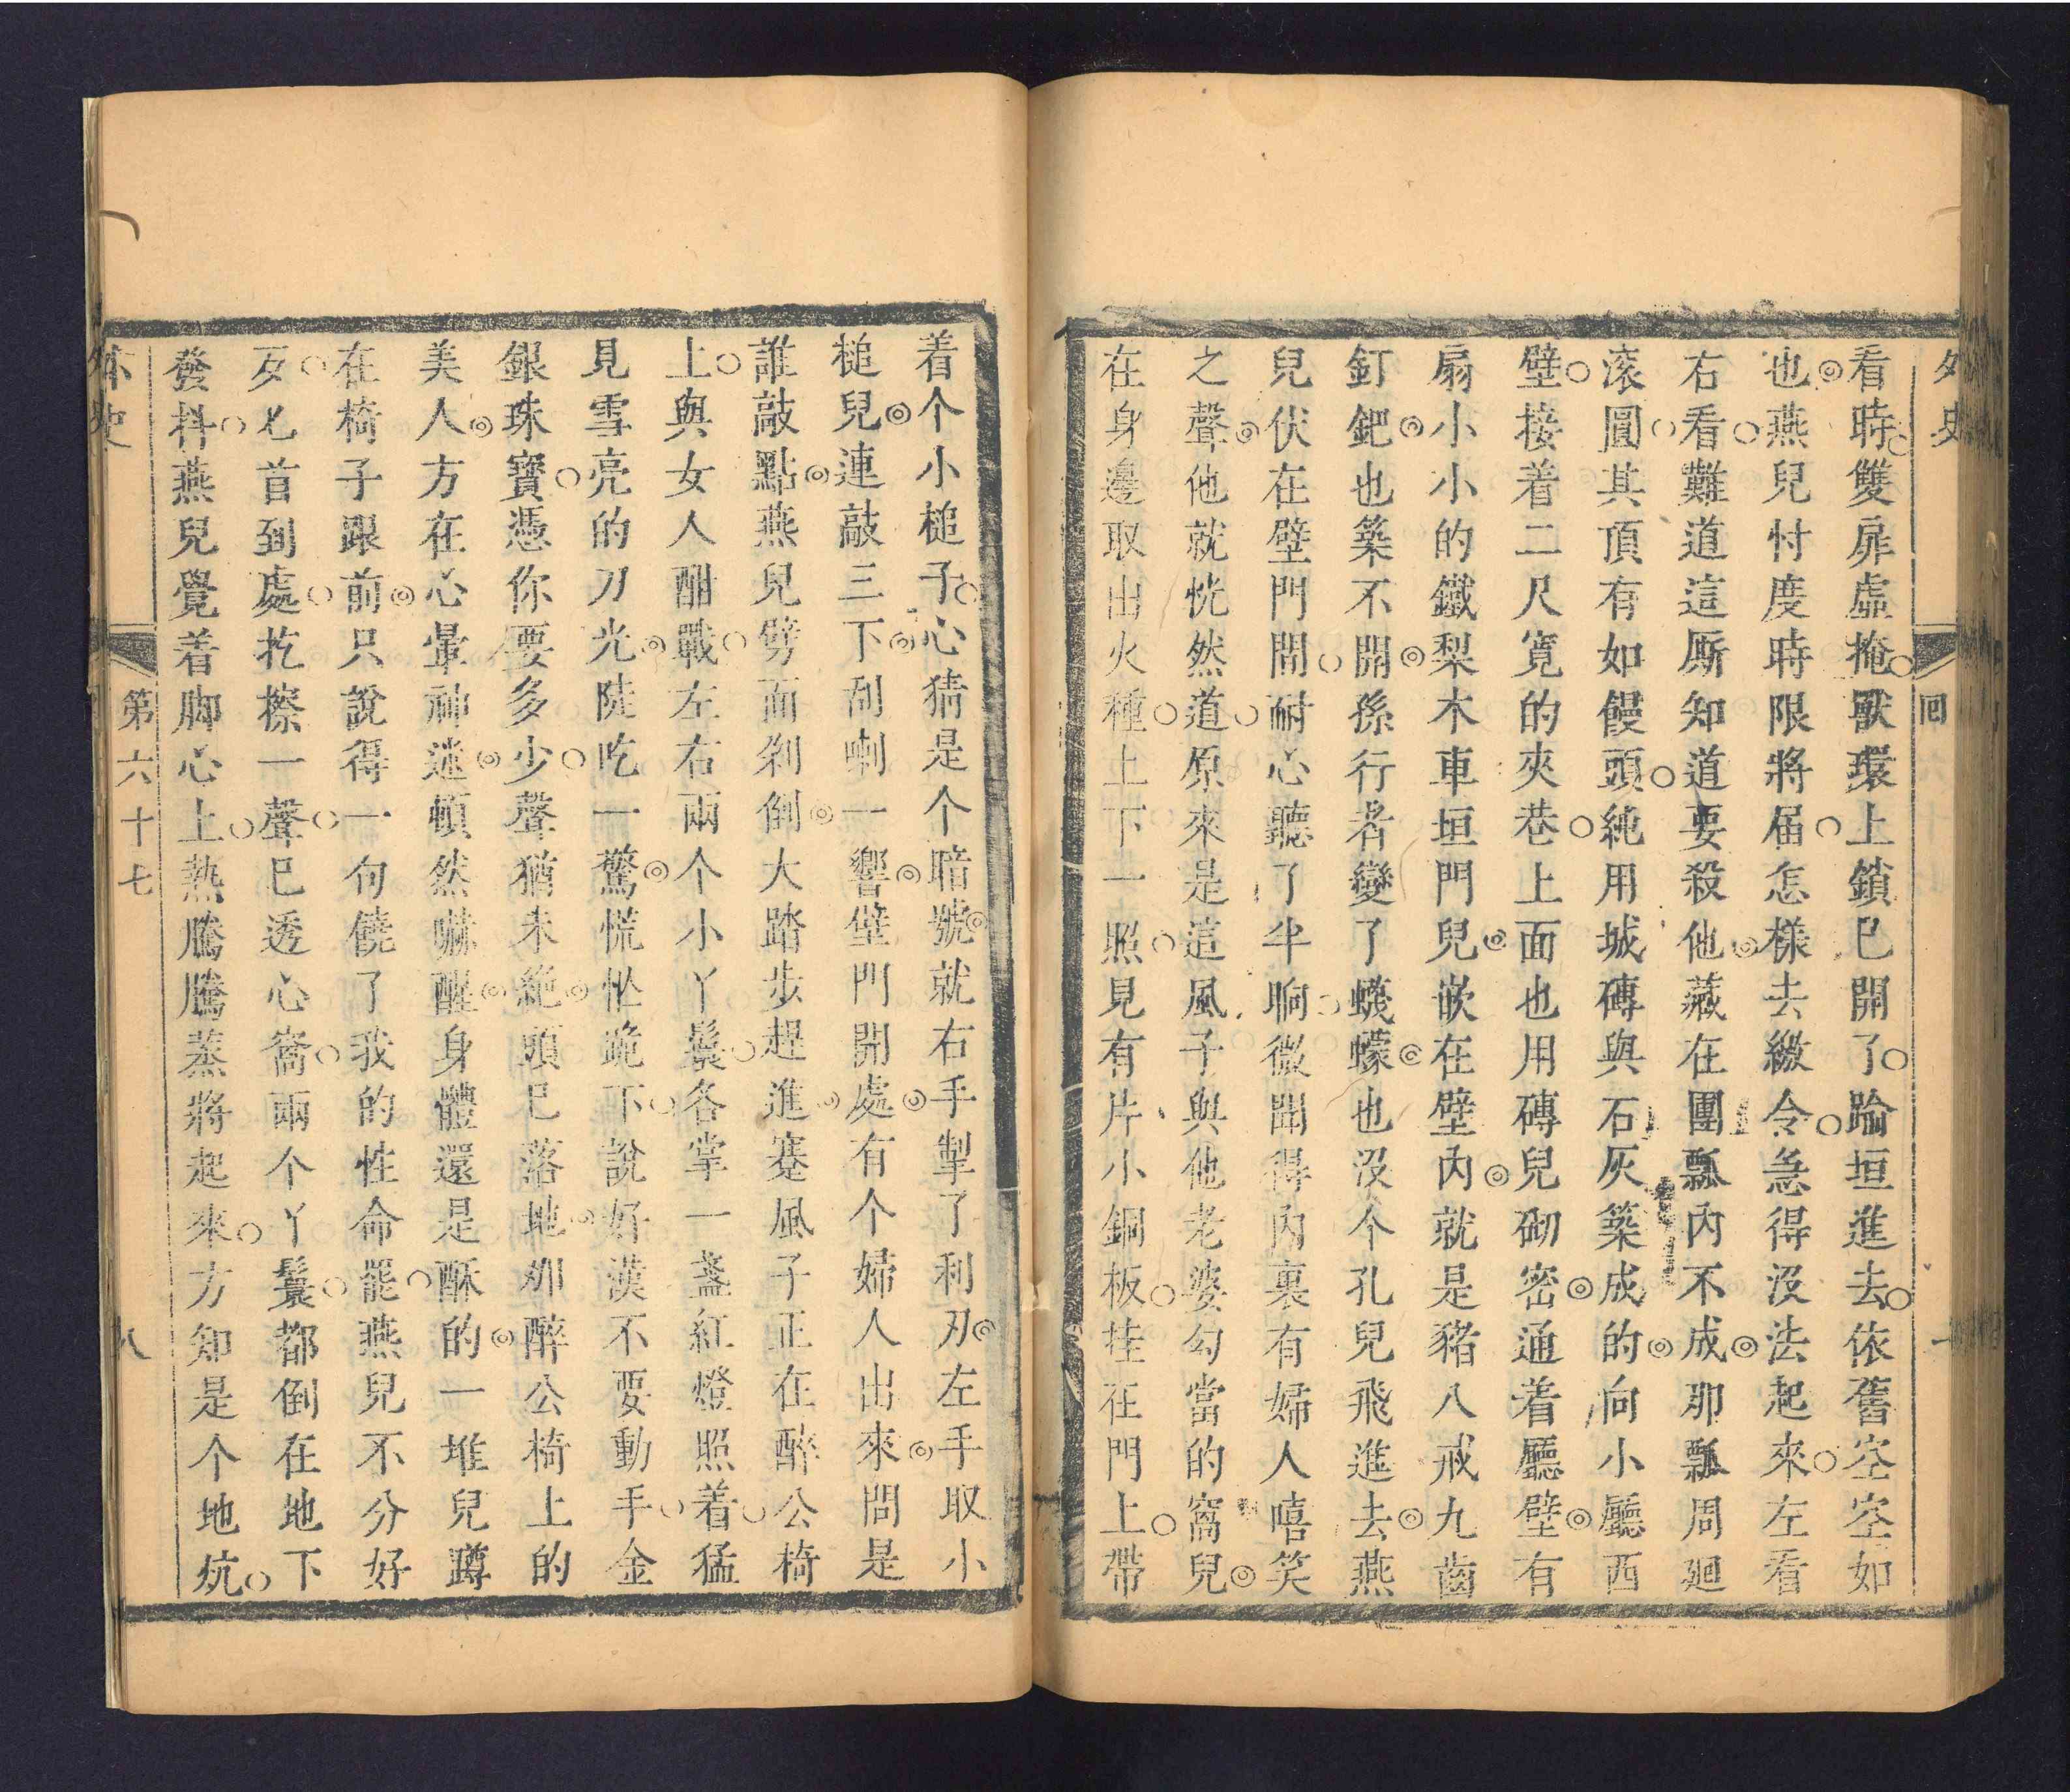 外史
回
看時雙扉虛掩獸環上鎖已開了踰垣進去依舊空空如
也燕兒忖度時限將届怎樣去繳令急得没法起來左看
右看難道這厮知道要殺他藏在團瓢内不成那瓢周廻
滚圓其頂有如饅頭純用城磚與石灰築成的向小廳西
壁接着二尺寛的夾巷上面也用磚兒砌密通着廳壁有
扇小小的鐵梨木車垣門兒嵌在壁内就是豬八戒九齒
釘鈀也築不開孫行者變了蠛蠓也没个孔兒飛進去燕
兒伏在壁門間耐心聽了半晌微聞得内裏有婦人嘻笑
之聲他就恍然道原來是這風子與他老婆勾當的窩兒
在身邊取出火種上下一照見有片小銅板挂在門上帶
着个小槌子心猜是个暗號就右手掣了利刃左手取小
槌兒連敲三下刮喇一響壁門開處有个婦人出來問是
誰敲點燕兒劈面剁倒大踏步趕進蹇風子正在醉公椅
上與女人酣戰左右兩个小丫鬟各掌一盞紅燈照着猛
見雪亮的刀光陡吃一驚慌忙跪下說好漢不要動手金
銀珠寶憑你要多少聲猶未絶頭已落地那醉公椅上的
美人方在心暈神迷頓然嚇醒身體還是酥的一堆兒蹲
在椅子跟前只說得一句饒了我的性命罷燕兒不分好
歹匕首到處扢擦一聲已透心窩兩个丫鬟都倒在地下
發抖燕兒覺着脚心上熱騰騰蒸將起來方知是个地炕
外史
第六十七
八